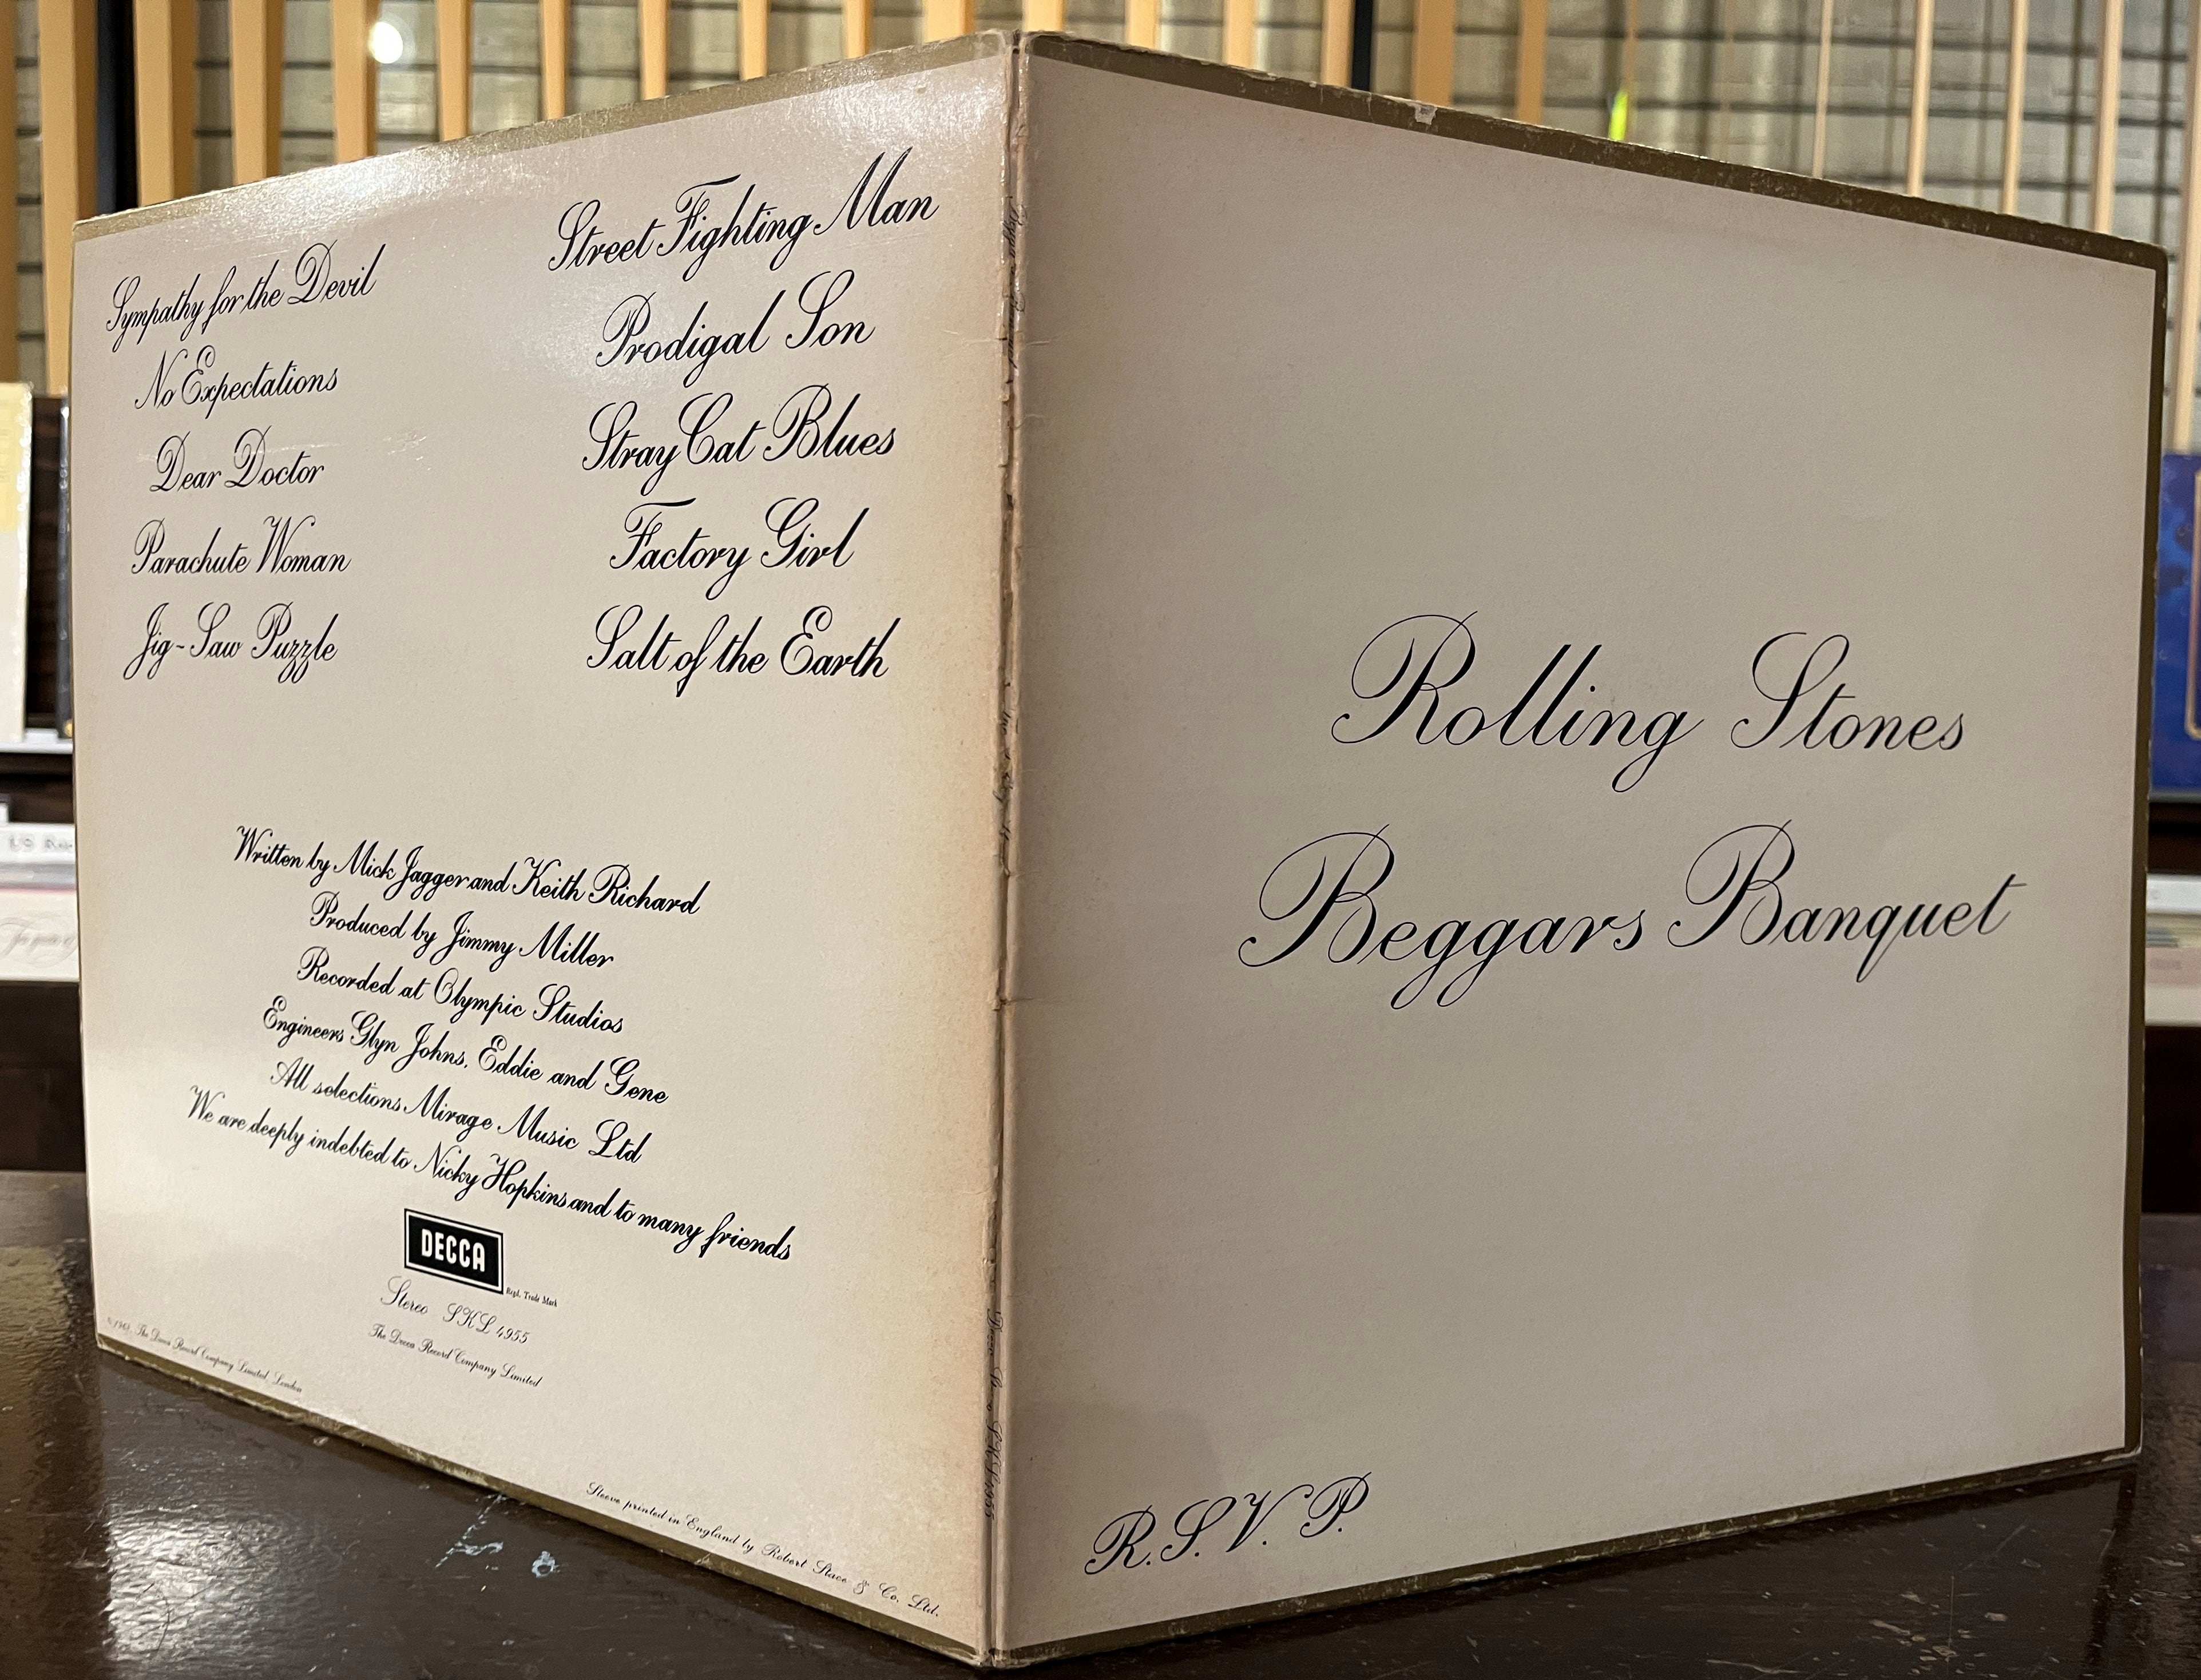 Sympathy for the Devil
No Expectations
Dear Doctor
Parachute Woman
Jig-Saw Puzzle
Street Fighting Man
Prodigal Son
Stray Cat Blues
Factory Girl
Salt of the Earth
Written by Mick Jagger and Keith Richard
Produced by Jimmy Miller
Recorded at Olympic Studios
Engineers Glyn Johns, Eddie and Gene
All selections Mirage Music Ltd
We are deeply indebted to Nicky Hopkins and to many friends
DECCA
Regd. Trade Mark
Stereo SKL 4955
The Decca Record Company Limited
The Decca Record Company Limited, London
Sleeve printed in England by Robert Stace & Co. Ltd.
Rolling Stones
Beggars Banquet
R.S.V.P.